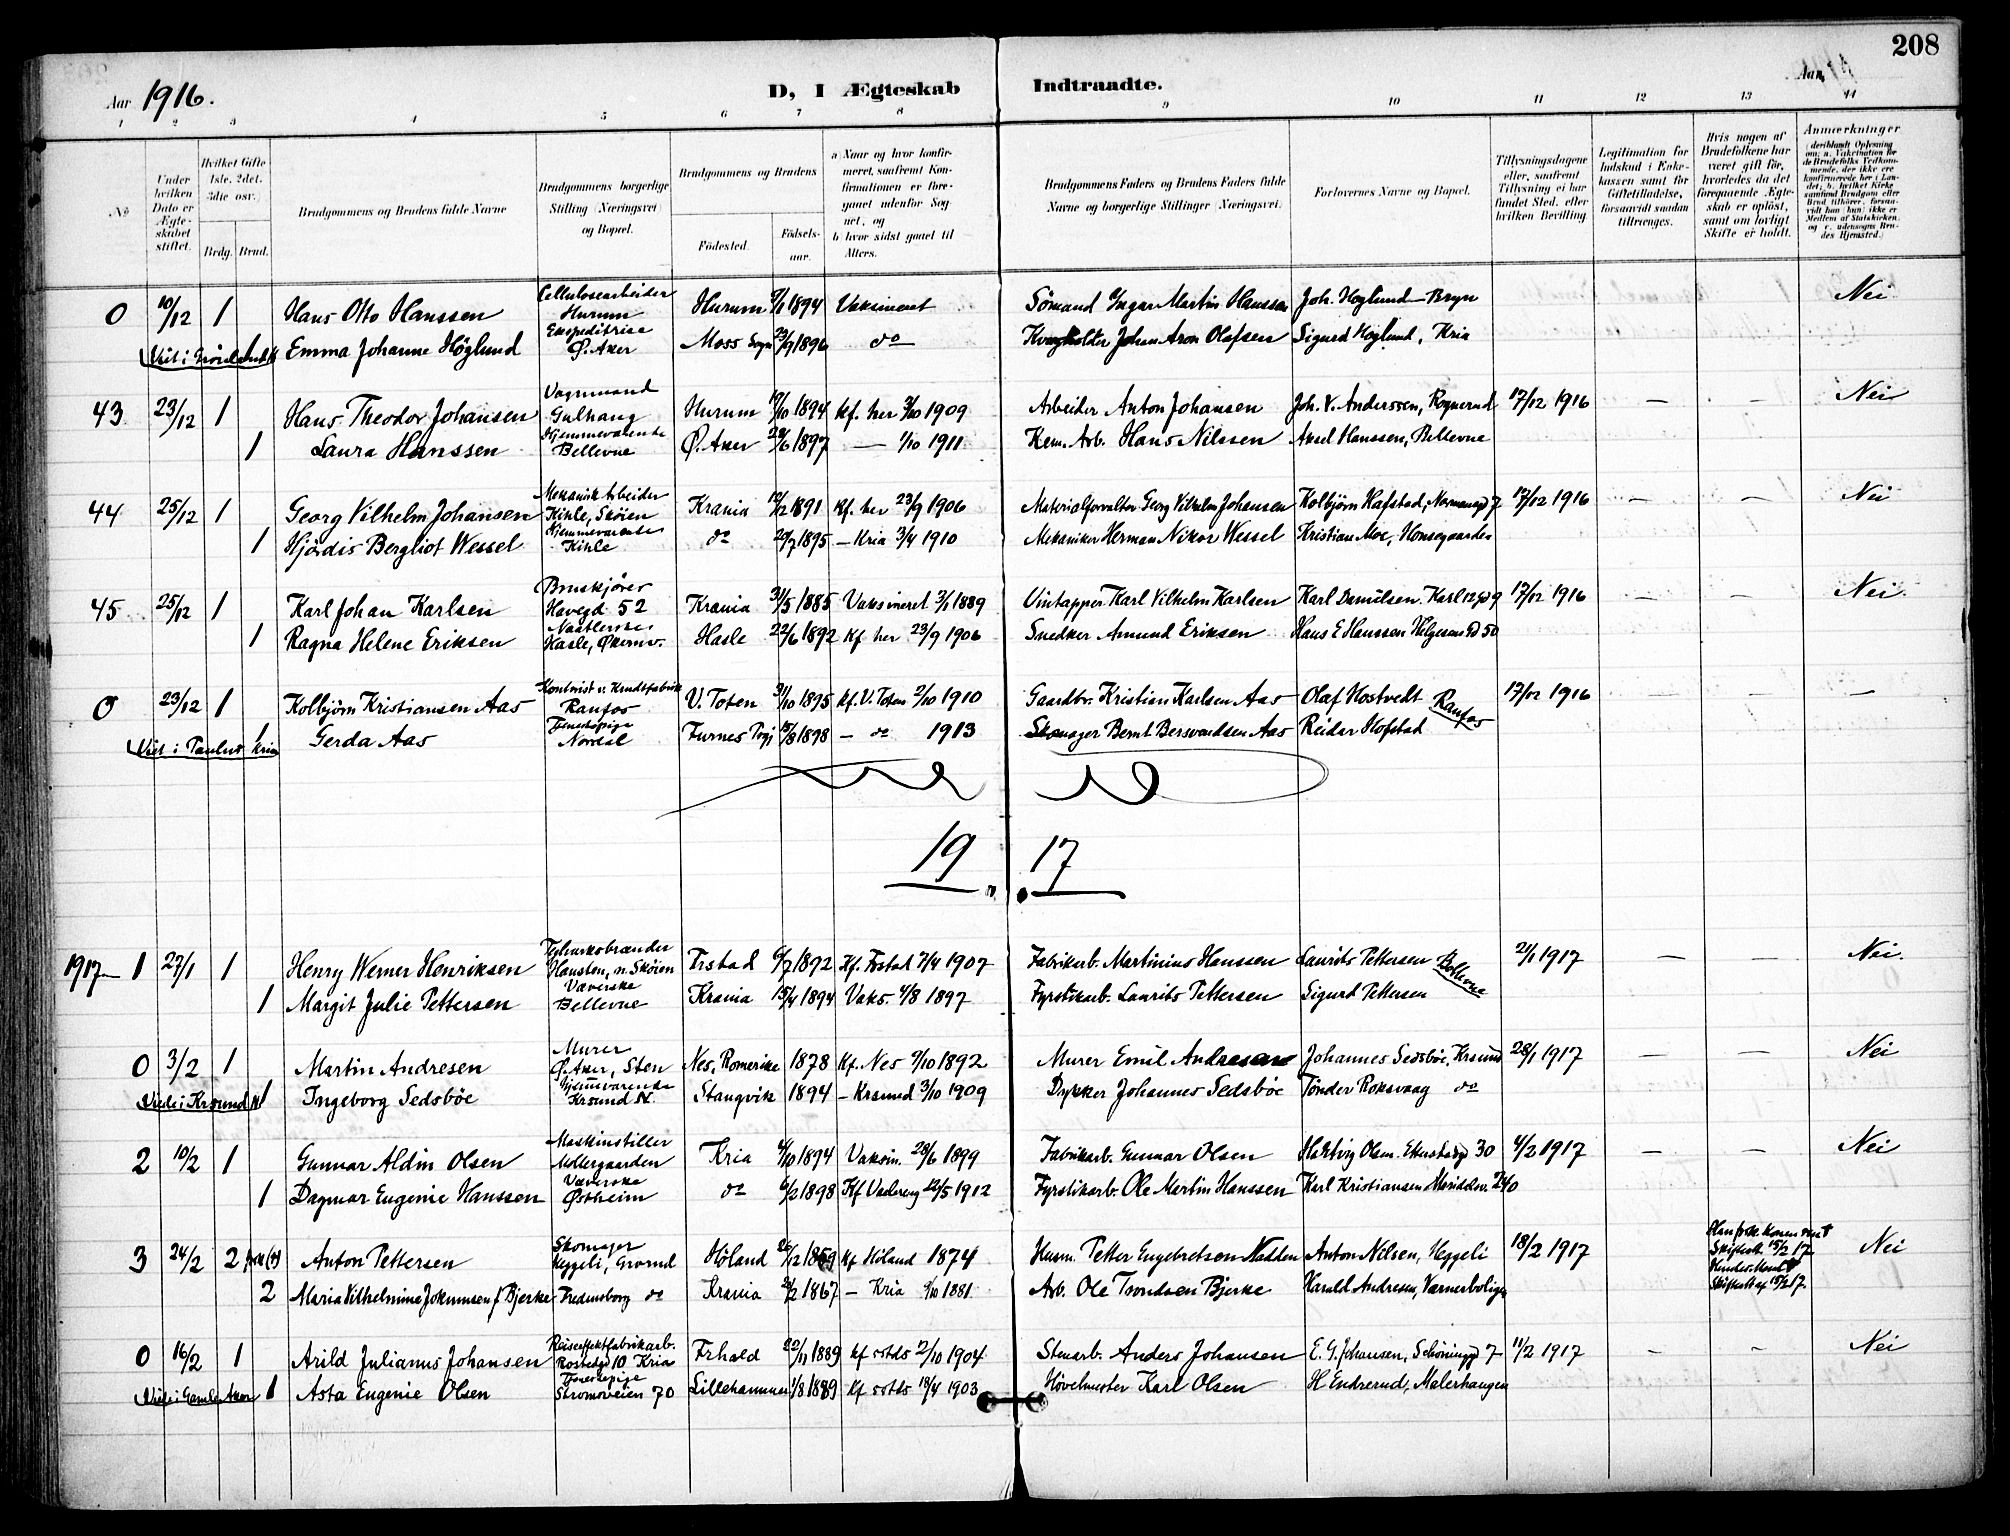 208
Aar 1916.
D, I Ægteskab Indtraadte.
Aar
1 2 3 4 5 6 7 8 9 10 11 12 13 14
No
Under hvilken Dato er Ægteskabet stiftet.
Hvilket Gifte 1ste. 2det. 3die osv.)
Brdg. Brud.
Brudgommens og Brudens fulde Navne
Brudgommens borgerlige Stilling (Næringsvei) og Bopæl.
Brudgommens og Brudens
Födested. Födsels-aar.
a Naar og hvor konfirmeret, saafremt Konfirmationen er foregaaet udenfor Sognet, og
b hvor sidst gaaet til Alters.
Brudgommens Faders og Brudens Faders fulde Navne og borgerlige Stillinger (Næringsvei)
Forlovernes Navne og Bopæl.
Tillysningsdagene eller, saafremt Tillysning ei har fundet Sted, efter hvilken Bevilling
Legitimation for Indskud i Enkekassen samt for Giftetilladelse, forsaavidt saadan tiltrænges.
Hvis nogen af Brudefolkene har været gift för, hvorledes da det foregaaende Ægteskab er oplöst, samt om lovligt Skifte er holdt.
Anmærkninger
(deriblandt Oplysning om: a. Vakcination for de Brudefolks Vedkommende, der ikke ere konfirmerede her i Landet; b. hvilket Kirkesamfund Brudgom eller Brud tilhörer, forsaavidt han (hun) ikke er Medlem af Statskirken, og c. udensogns Brudes Hjemsted.)
0 10/12 1 Hans Otto Hanssen Cellulosearbeider Hurum Hurum 1894 Vaksineret Sömand Ingar Martin Hanssen Joh. Hoglund - Bryn Nei
Viet i 1 Emma Johanne Höglund Ekspeditrise Ö. Aker Moss Sogn 23/9 1896 do Johan Aron Olafsen Sigurd Hoglund, Kria
43 23/12 1 Hans Theodor Johansen Vognmand Gulhaug Hurum 1894 Kf. her 3/10 1909 Arbeider Anton Johansen Joh. V. Anderssen, Rognerud 17/12 1916 — — Nei
1 Laura Hanssen Hjemmeværende Bellevue Ö. Aker 1897 — 1/10 1911 Kem. Arb. Hans Nilssen Aksel Hanssen, Bellevue
44 25/12 1 Georg Vilhelm Johansen Mekanisk Arbeider Kihle, Skøien Krania 12/12 1891 Kf. her 23/9 1906 Materialforvalter Georg Vilhelm Johansen Kolbjörn Hafstad, Normannsgd 7 17/12 1916 — — Nei
1 Hjørdis Bergliot Wessel Hjemmeværende Kihle do 1895 — Kria 3/4 1910 Mekaniker Herman Nikor Wessel Kristian Moe, Homsegaarden
45 25/12 1 Karl Johan Karlsen Bruskjører Havegd 52 Krania 31/5 1885 Vaksineret 3/1 1889 Vintapper Karl Vilhelm Karlsen Karl Danielsen. Karl 12 gd 9 17/12 1916 — — Nei.
1 Ragna Helene Eriksen Hasle, Økernv. Hasle 22/6 1892 Kf her 23/9 1906 Snedker Amund Eriksen Hans E Hanssen Helgesens gd 50
0 23/12 1 Kolbjørn Kristiansen Aas Kontorist v. Krudtfabrik Raufos V. Toten 31/10 1895 Kf. V. Toten 2/10 1910 Gaardbr. Kristian Karlsen Aas Olaf Hostvedt Raufos 17/12 1916 — — —
Viet i Paulus kirke 1 Gerda Aas Tjenestepige Nordal Furnes Pgj 15/8 1898 — do 1913 Skomager Bernt Bersvendsen Aas Reidar Hofstad
19 17
1917— 1 27/1 1 Henry Werner Henriksen Hausten, n. Skøien Frstad 6/7 1892 Kf. Frstad 7/4 1907 Fabrikarb. Martinius Hanssen Laurits Pettersen Bellevue 21/1 1917 — — Nei.
1 Margit Julie Pettersen Væverske Bellevue Krania 15/4 1894 Vaks. 4/8 1897 Fyrstikarb. Laurits Pettersen Sigurd Pettersen
0 3/2 1 Martin Andresen Murer Ö. Aker, Sten Nes, Romerike 1878 Kf. Nes 9/10 1892 Murer Emil Andresen Johannes Sedsböe, Krsund 28/1 1917 — — Nei
Viede i Krsund N 1 Ingeborg Sedsböe Hjemmeværende Krsund N. Stangvik 1894 — Krsund 3/10 1909 Dykker Johannes Sedsböe Tönder Roksvaag do
2 10/2 1 Gunnar Aldin Olsen Maskinstiller Mollergaarden Kria 4/10 1894 Vaksin. 28/6 1899 Fabrikarb. Gunnar Olsen Hartvig Olsen. Ekerstadgd 30 4/2 1917 — — Nei
1 Dagmar Eugenie Hanssen Væverske Østheim do 6/2 1898 Kf Vaalereng 12/5 1912 Fyrstikarb. Ole Martin Hanssen Karl Kristiansen Maridalsv. 240
3 24/2 2 Anton Pettersen Skomager Heggeli, Grorud Höland 26/12 1859 Kf Höland 1874 Husm. Petter Engebretsen Nadden Anton Nilsen, Heggeli 18/2 1917 Skifteatt 15/2 17. Nei
2 Maria Vilhelmine Jokumsen f Bjerke Fredensborg do Krania 1867 — Kria 9/10 1881 Arb. Ole Trondsen Bjerke Harald Andresen, Værnerboliger Skifteattest 15/2 17.
0 16/2 1 Arild Julianus Johansen Reiseeffektfabrikarb. Rostedgd 10 Kria Frhald 22/11 1889 Kf sstds 2/10 1904 Stenarb. Anders Johansen E. G. Johansen, Schöningsgd 7 11/2 1917 — — Nei
Viede i Gamle Aker 1 Asta Eugenie Olsen Tjenestepige Strömsveien 70 Lillehammer 1/8 1889 Kf sstds 18/4 1903 Hövelmester Karl Olsen H. Endrerud, Malerhaugen